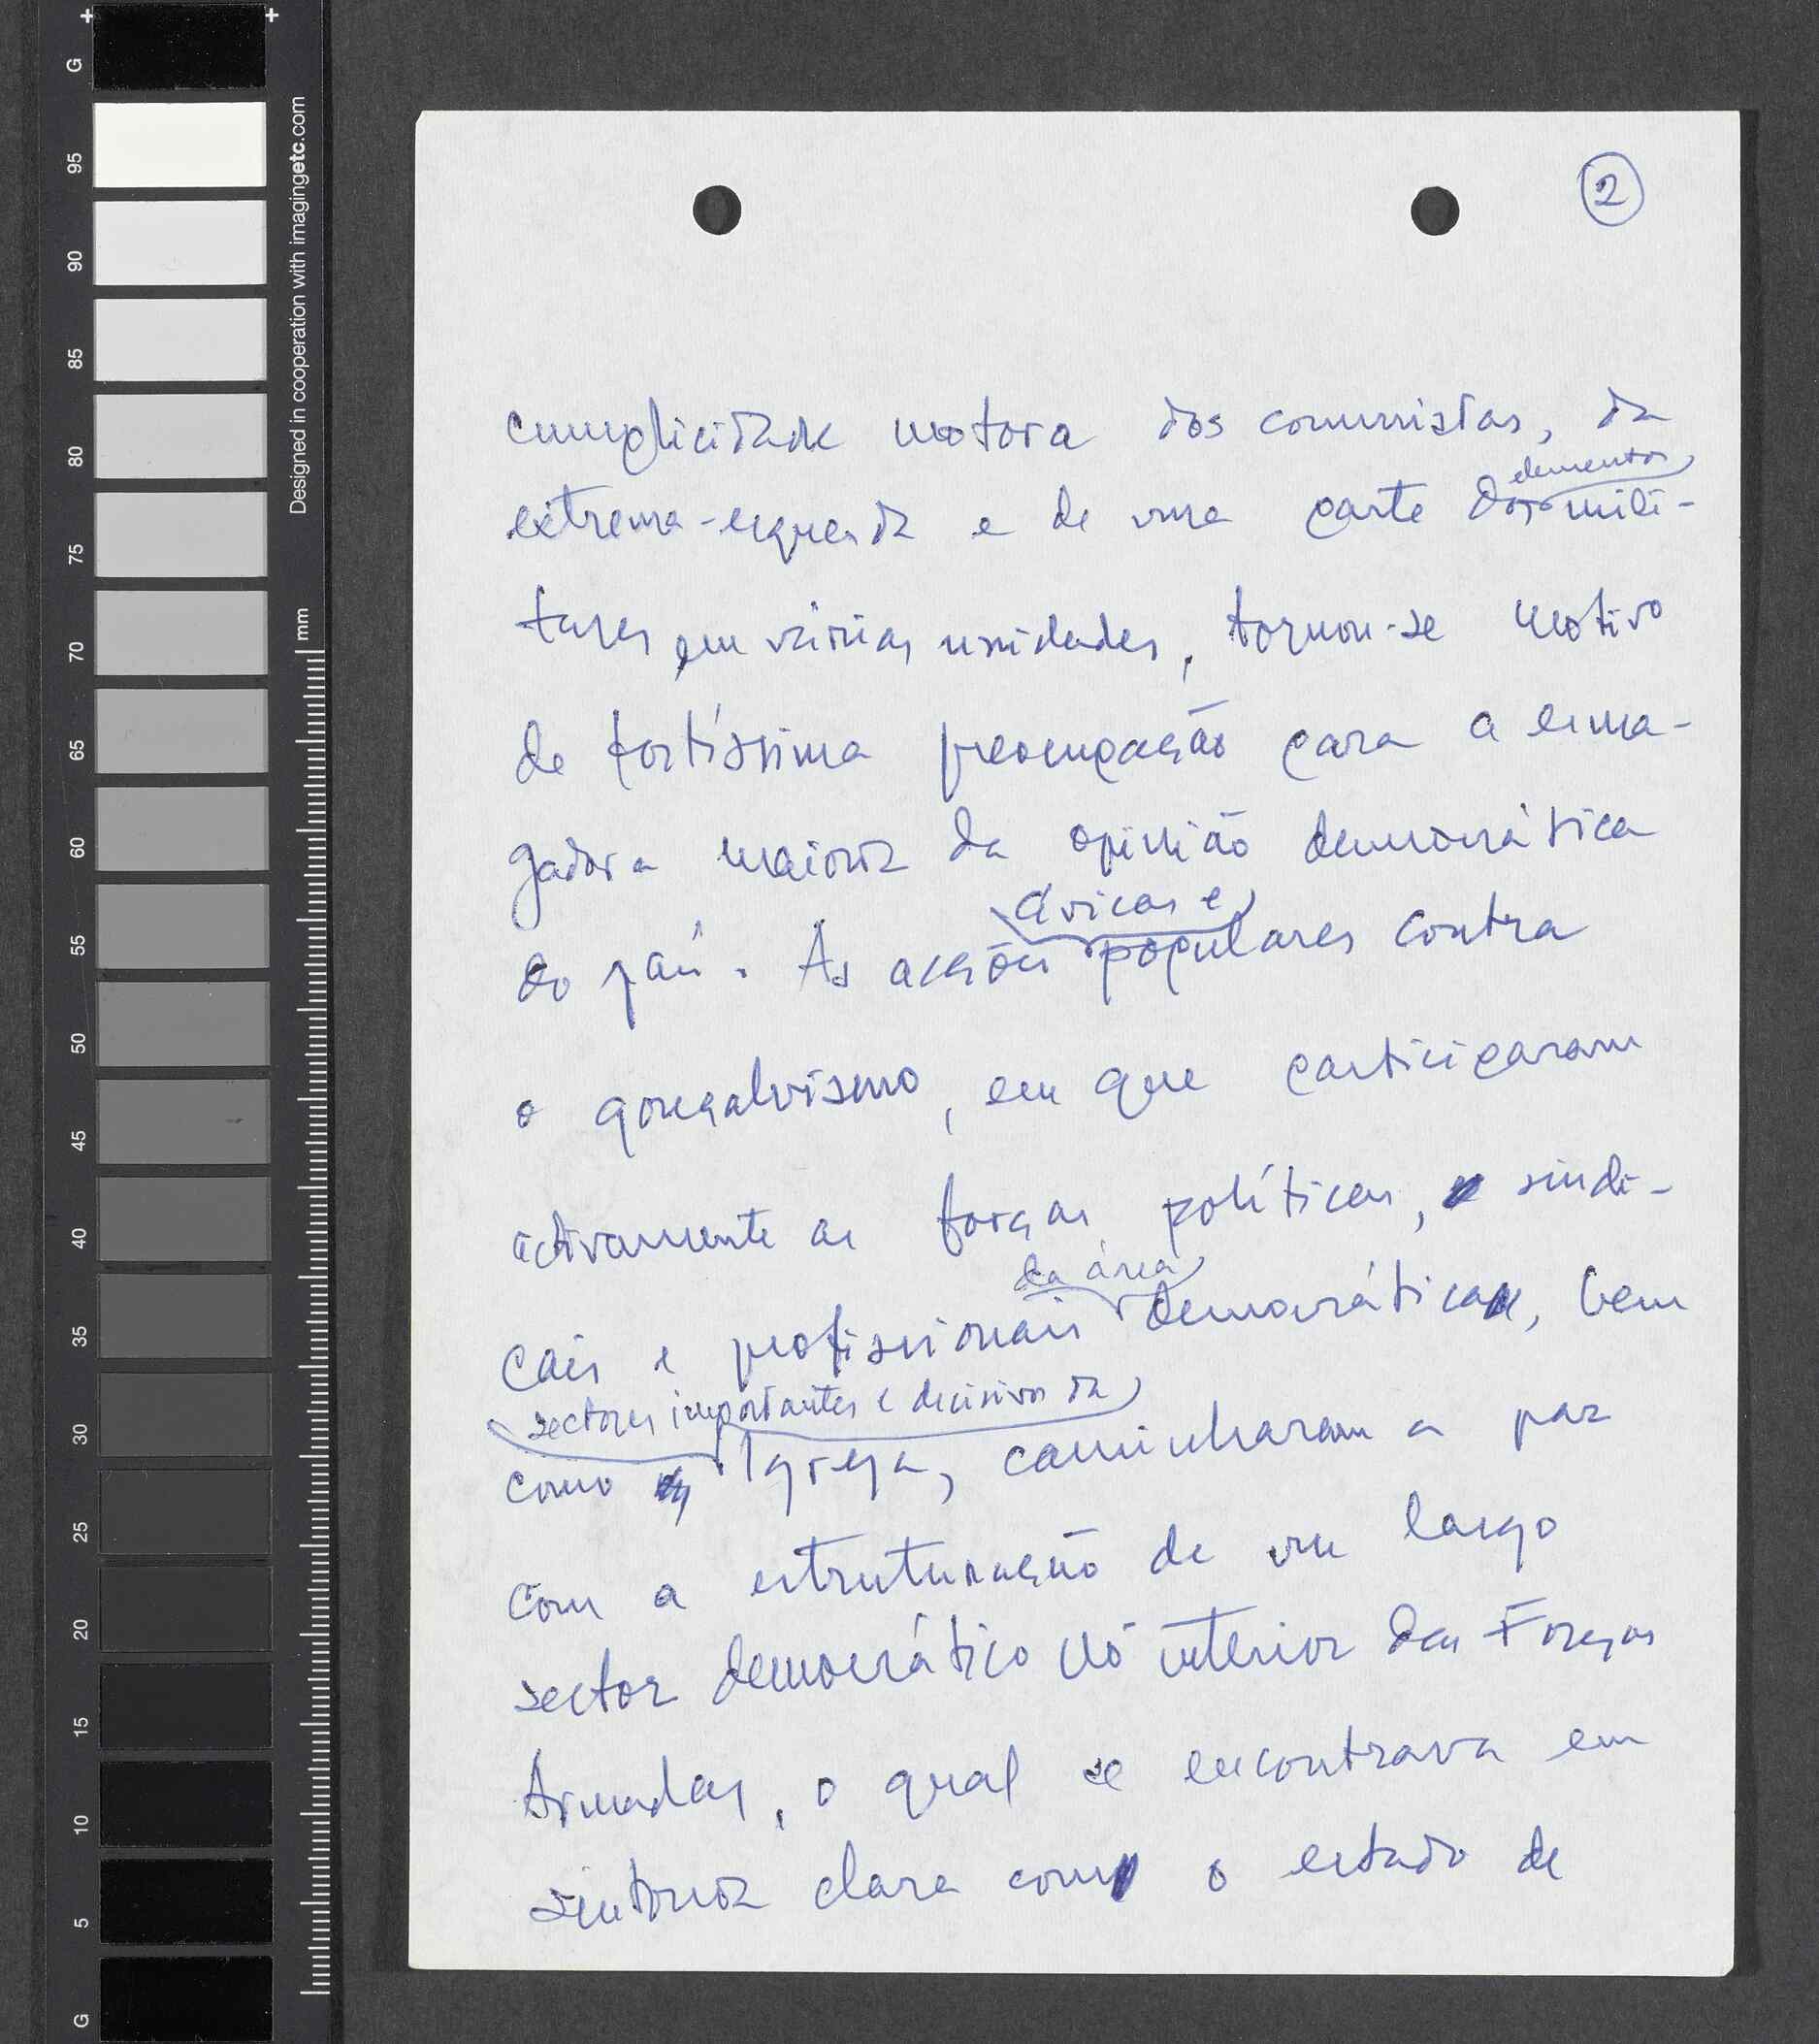 2
cumplicidade motora dos comunistas, da
elementos
extrema-esquerda e de uma parte dos mili-
tares em várias unidades, tornou-se motivo
de fortíssima preocupação para a esma-
gadora maioria da opinião democrática
cívicas e
do país. As acções populares contra
o gonçalvismo, em que participaram
activamente as forças políticas, sindi-
da área
cais e profissionais democrática, bem
sectores importantes e decisivos da
como Igreja, caminharam a par
com a estruturação de um largo
sector democrático no interior das Forças
Armadas, o qual se encontrava em
sintonia clara com o estado de
G
95
90
85
80
75
70
65
60
55
50
45
40
35
30
25
20
15
10
5
G
Designed in cooperation with imagingetc.com
mm